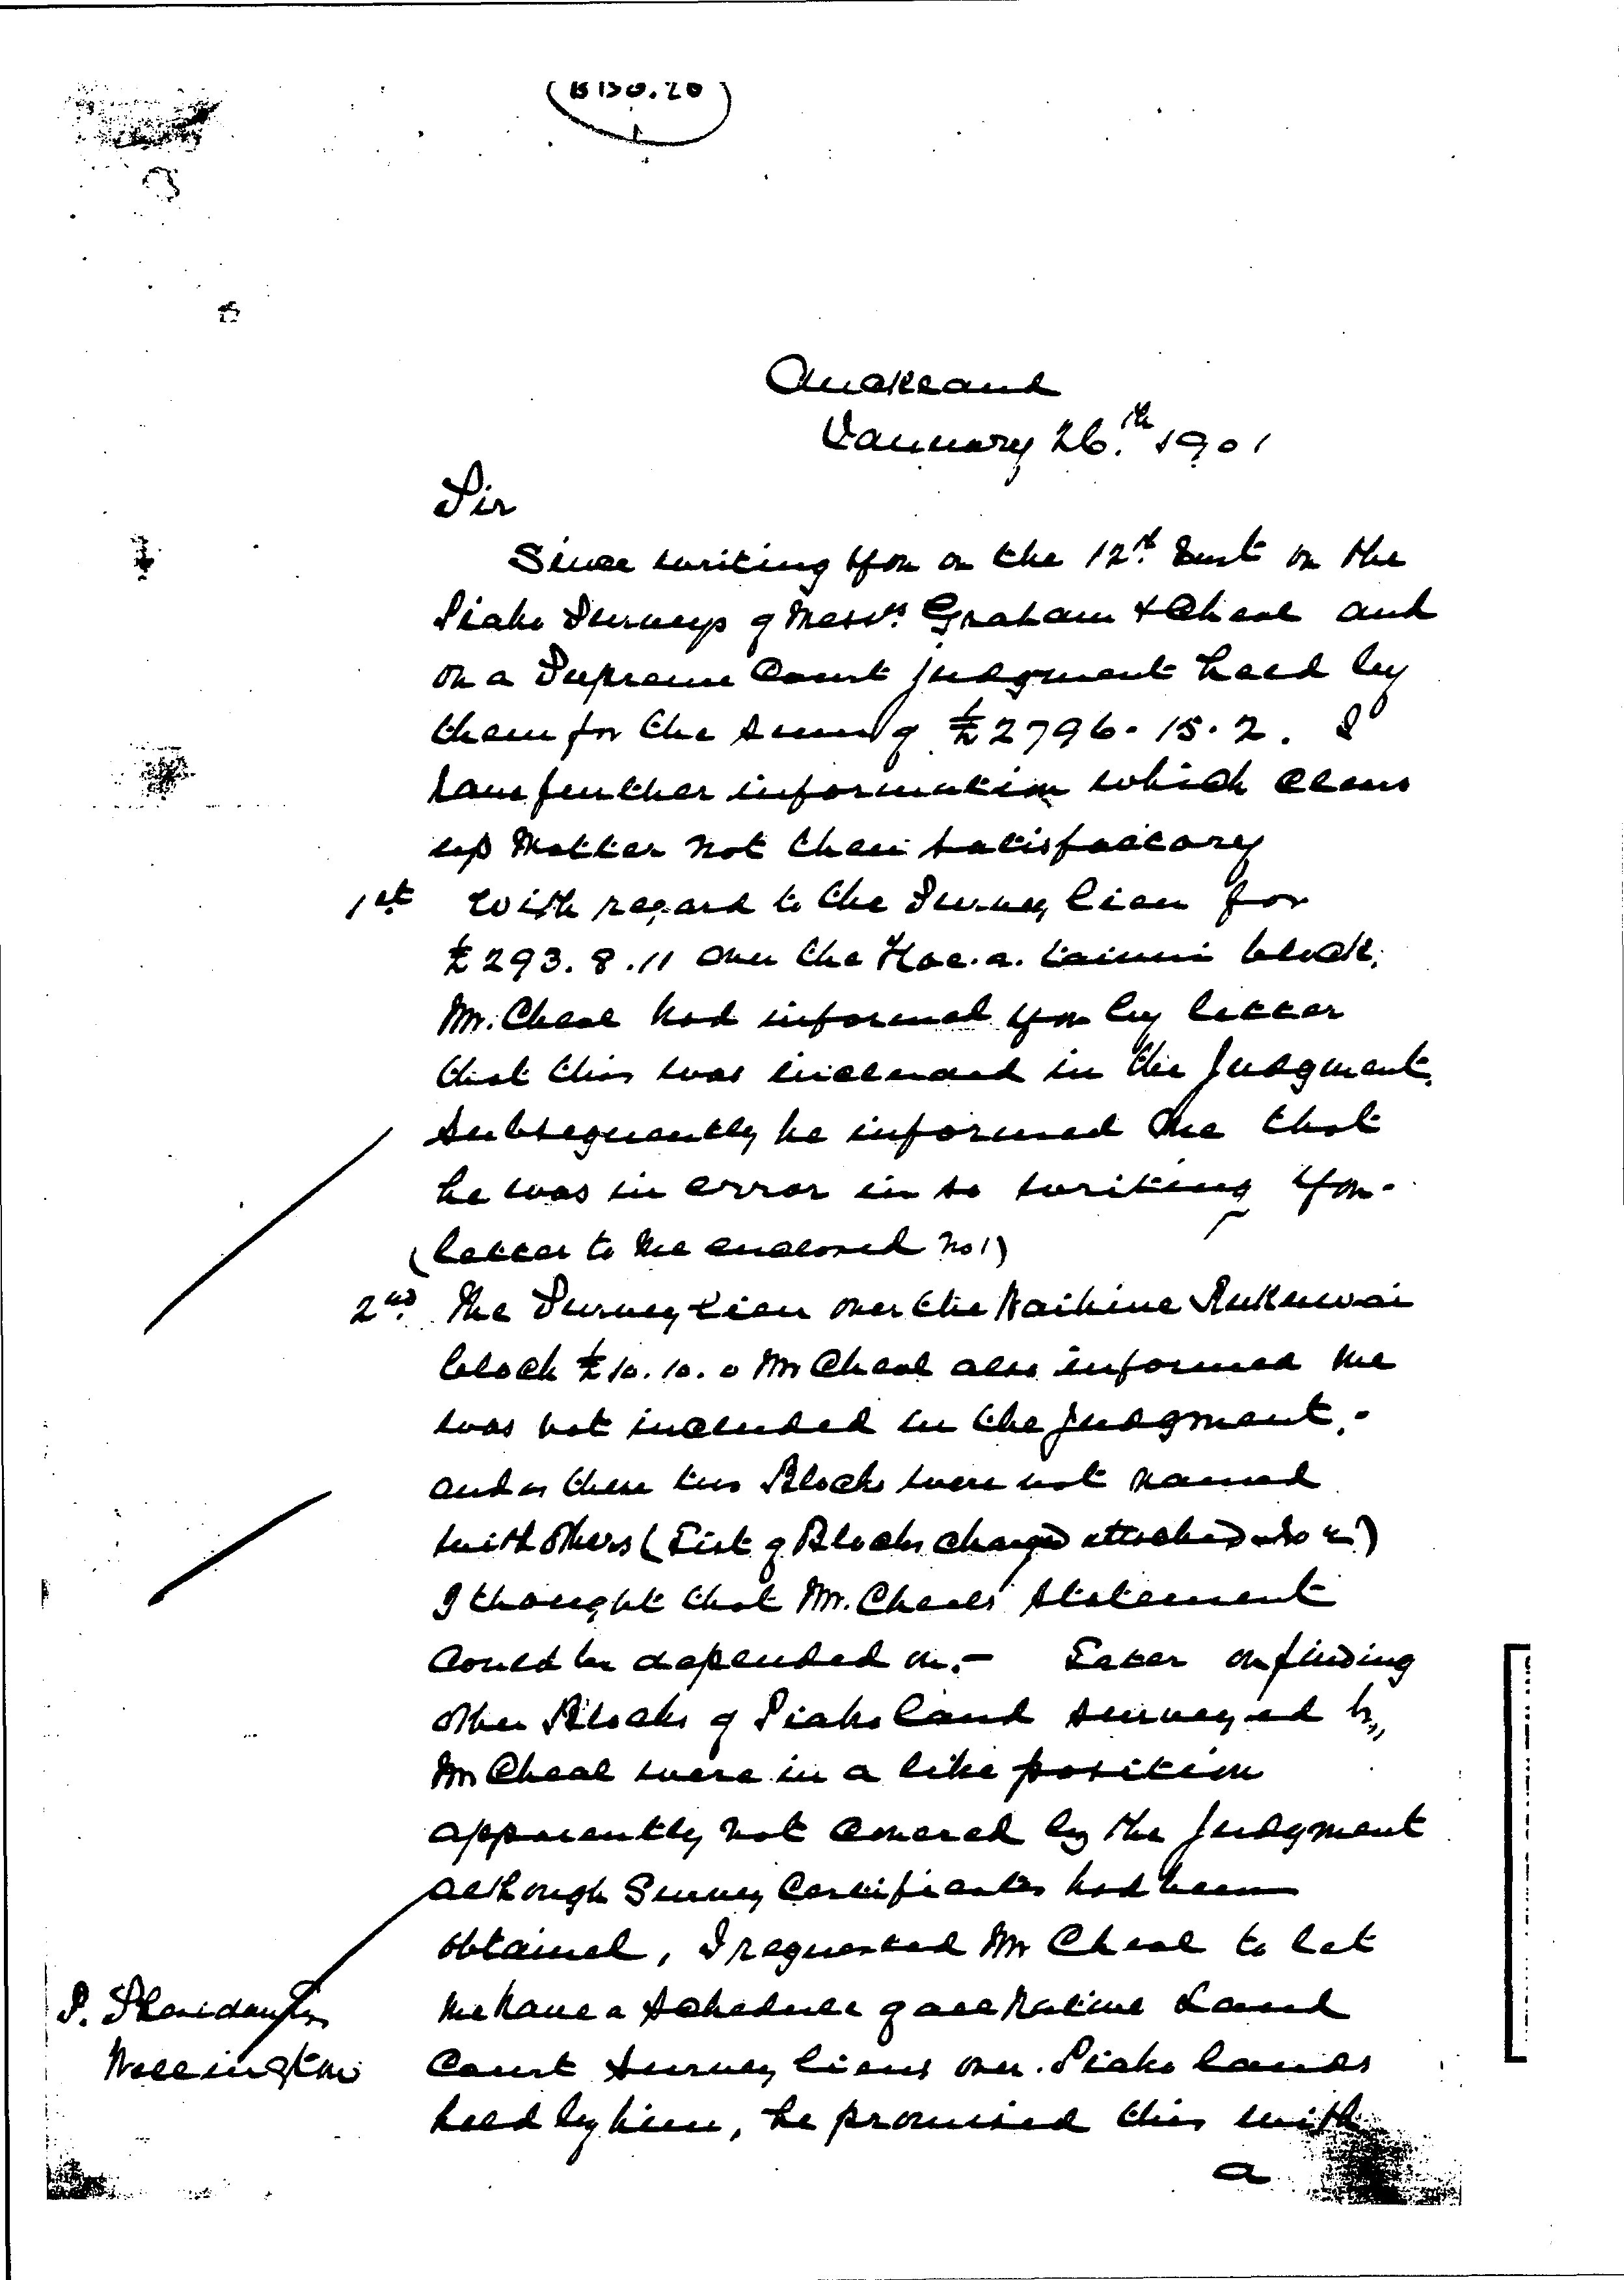 Auckland
January 26.th 1901
Sir
Since writing you on the 12th Inst on the
Piako Surveys of Messrs. Graham & Cheal and
on a Supreme Court judgment held by
them for the sum of £2796.15.2. I
have further information which clears
up matter not then satisfactory
1st With regard to the Survey lien for
£293.8.11 over the Hoe.a.tainui block,
Mr. Cheal had informed you by letter
that this was included in the judgment.
Subsequently he informed me that
he was in error in so writing you.
(letter to me enclosed No 1)
2nd. The Survey lien over the Waihine Rukuwai
block £10.10.0 Mr Cheal also informed me
was not included in the judgment.-
and as these two Blocks were not named
with others (List of Blocks charged attached
I thought that Mr. Cheal's statement
could be depended on.- Later on finding
other Blocks of Piako land surveyed by
Mr Cheal were in a like position
apparently not covered by the judgment
although Survey Certificates had been
obtained, I requested Mr Cheal to let
me have a schedule of all Native Land
Court survey liens over Piako lands
held by him, he promised this with
a
P. Sheridan Esq
Wellington